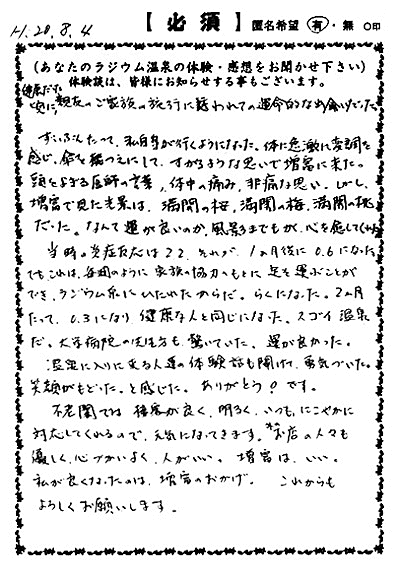 H.20.8.4 【必須】 匿名希望 有・無 ○印
(あなたのラジウム温泉の体験・感想をお聞かせ下さい)
体験談は、皆様にお知らせする事もございます。
健康だった
頃に、親友のご家族の旅行に誘われての運命的な出会いでした
ずいぶんたって、私自身が行くようになった。体に急激に変調を
感じ、命を綱つえにして、すがるような思いで増富に来た。
頭をよぎる医師の言葉、体中の痛み、悲痛な思い。しかし、
増富で見た光景は、満開の桜、満開の梅、満開の桃
だった。なんて運が良いのか、風景までもが、心を癒してくれた
当時の炎症反応は22、それが、1ヶ月後に0.6になった
でもこれは、毎週のように家族の協力のもとに足を運ぶことが
でき、ラジウム泉にひたれたからだ。らくになった。2ヵ月
たって、0.3になり、健康な人と同じになった。スゴイ温泉
だ。大学病院の先生方も、驚いていた、運が良かった。
温泉に入りに来る人達の体験話も聞けて、勇気づいた。
笑顔がもどった。と感じた。ありがとう!です。
不老閣では、接客が良く、明るく、いつも、にこやかに
対応してくれるので、元気になってきます。お店の人々も
優しく、心づかいよく、人がいい。増富は、いい。
私が良くなったのは、増富のおかげ。これからも
よろしくお願いします。